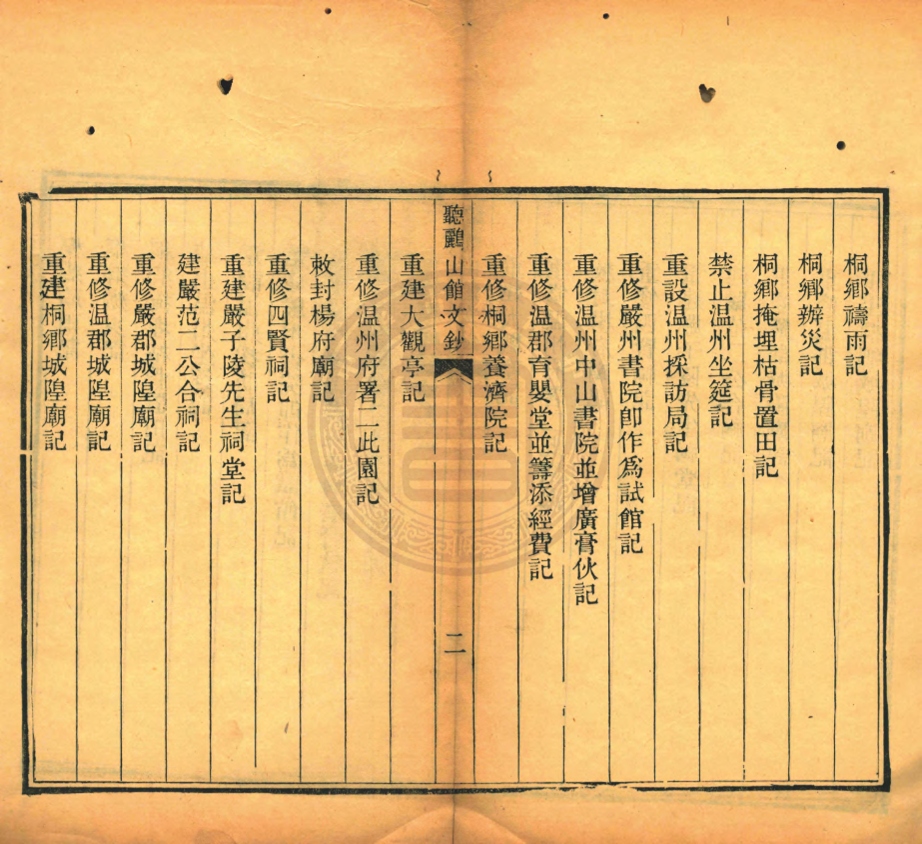 桐鄉禱雨記
桐鄉辦災記
桐鄉掩埋枯骨置田記
禁止温州坐筵記
重設温州採訪局記
重修嚴州書院卽作爲試館記
重修温州中山書院並增廣膏伙記
重修温郡育嬰堂並籌添經費記
重修桐鄉養濟院記
聽鸝山館文鈔
二
重建大觀亭記
重修温州府署二此園記
敕封楊府廟記
重修四賢祠記
重建嚴子陵先生祠堂記
建嚴范二公合祠記
重修嚴郡城隍廟記
重修温郡城隍廟記
重建桐鄉城隍廟記